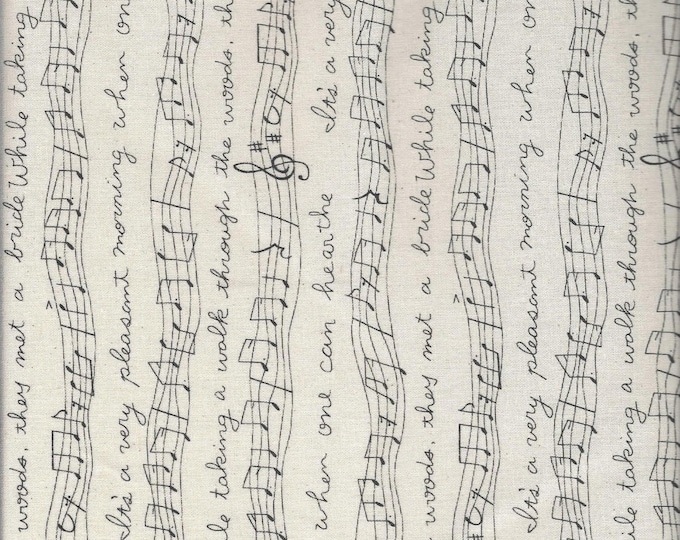 woods, they met a bride While taking
It's a very pleasant morning when on
le taking a walk through the woods, th
when one can hear the It's a very
woods, they met a bride While taking
It's a very pleasant morning when on
ile taking a walk through the woods, th